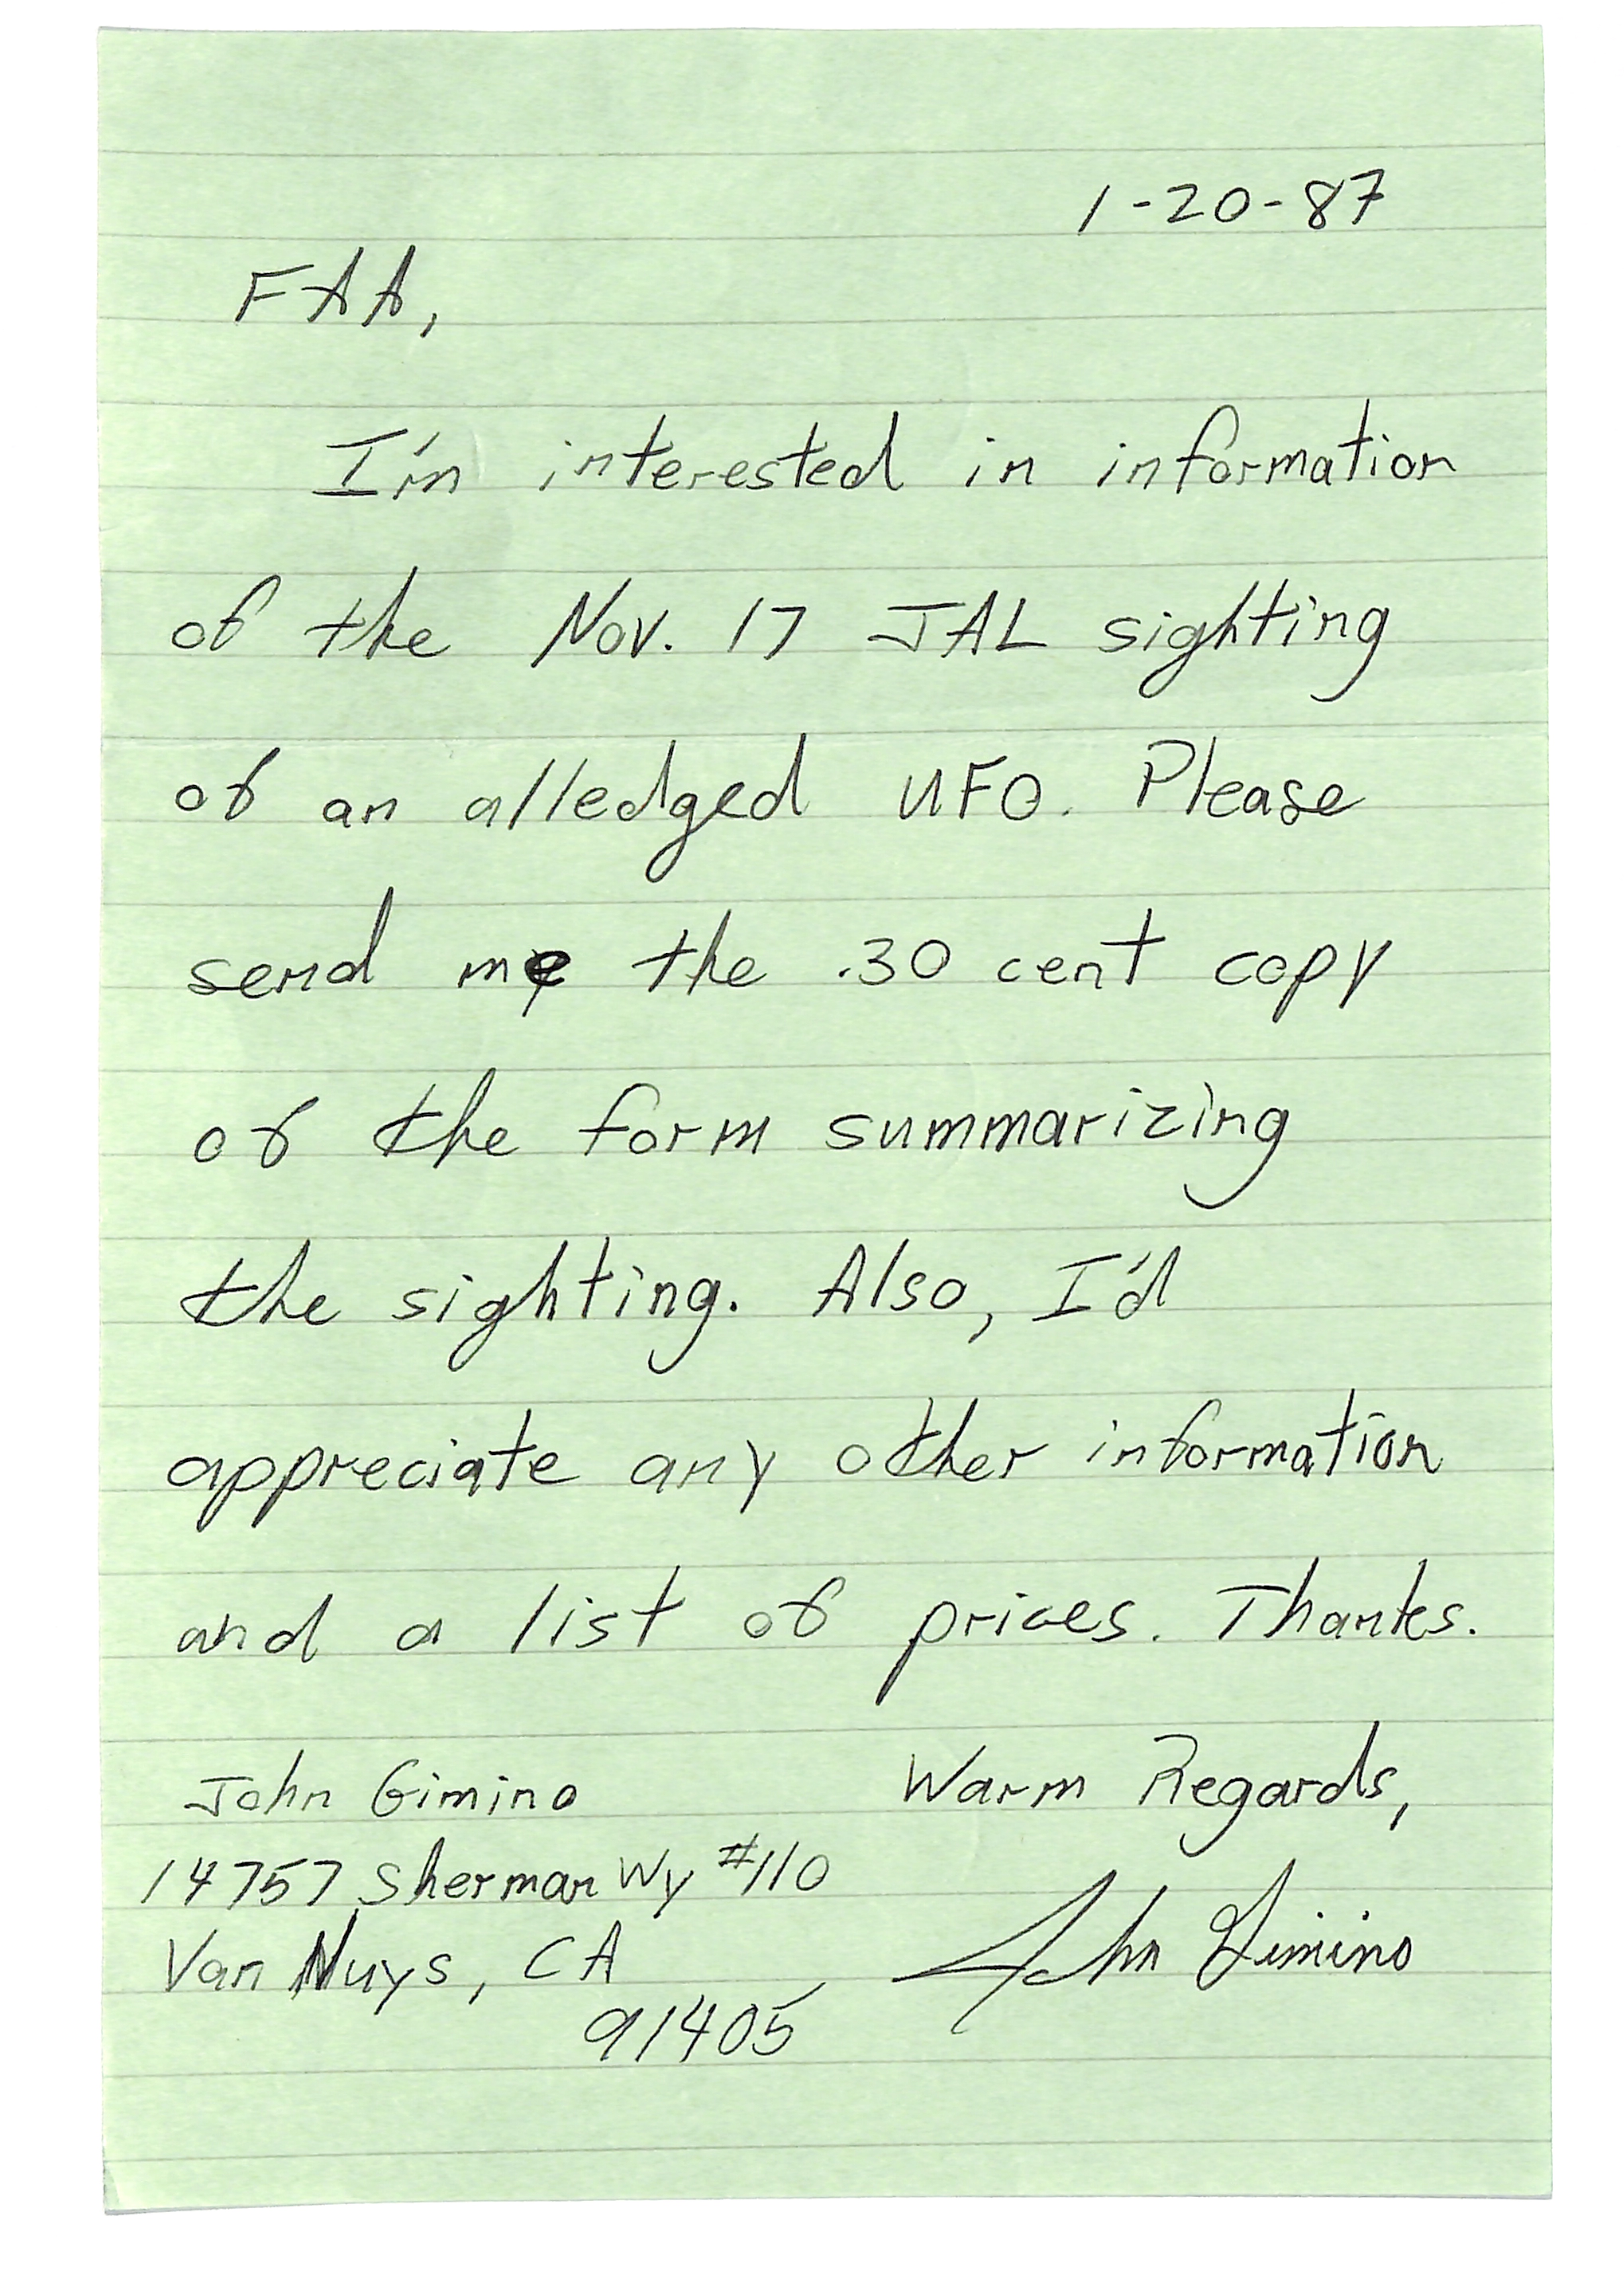 1-20-87
FAA,
I'm interested in information
of the Nov. 17 JAL sighting
of an alledged UFO. Please
send me the .30 cent copy
of the form summarizing
the sighting. Also, I'd
appreciate any other information
and a list of prices. Thanks.
Warm Regards,
John Gimino
John Gimino
14757 Sherman Wy #110
Van Nuys, CA
91405